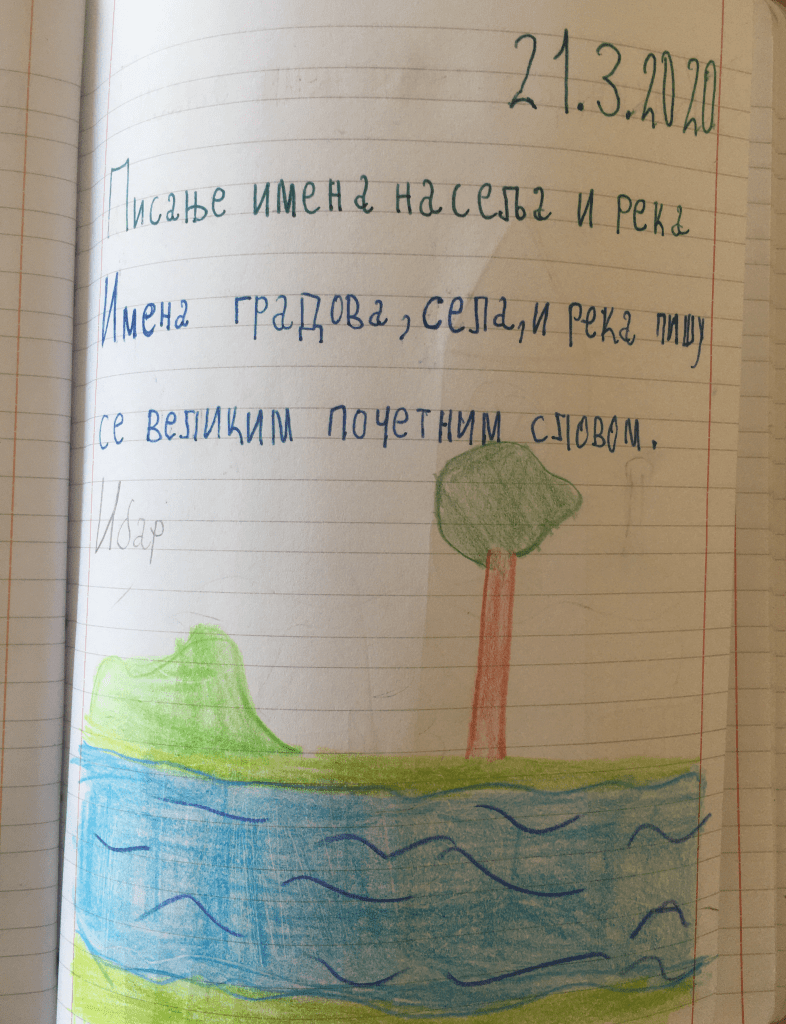 21.3.2020
Писање имена насеља и река
Имена градова, села, и река пишу
се великим почетним словом.
Ибар